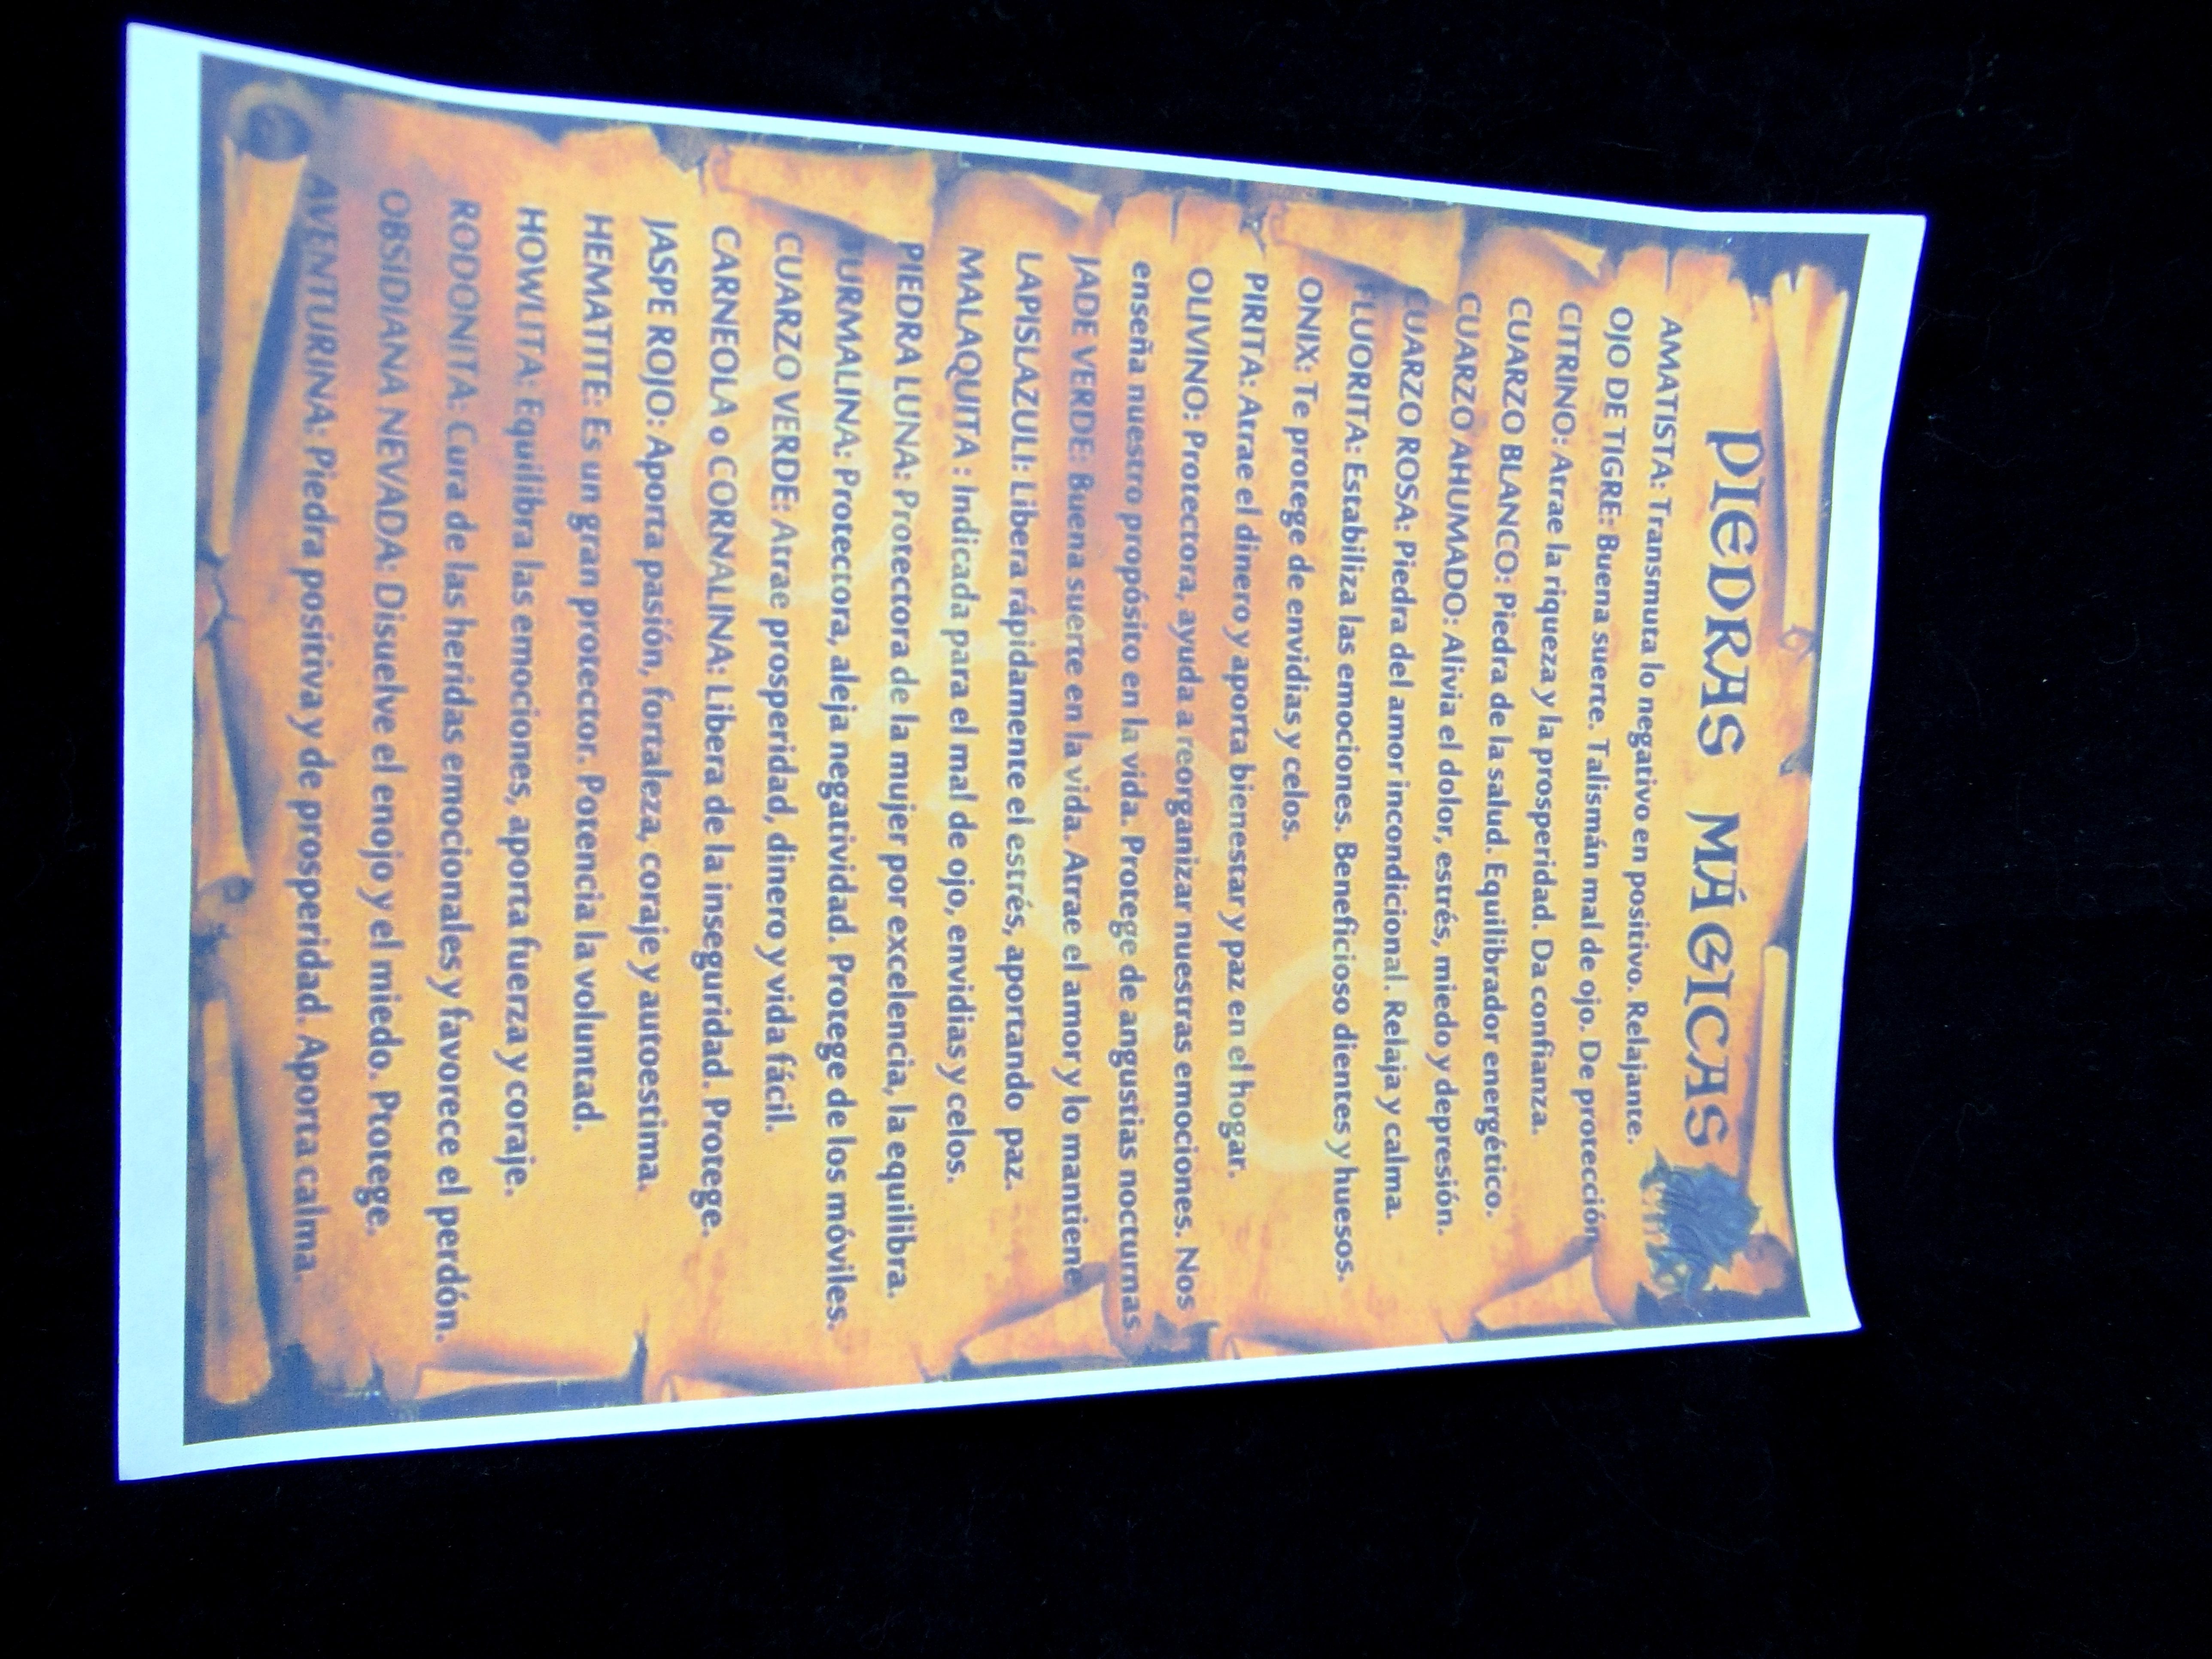 PIEDRAS MÁGICAS
AMATISTA: Transmuta lo negativo en positivo. Relajante.
OJO DE TIGRE: Buena suerte. Talismán mal de ojo. De protección
CITRINO: Atrae la riqueza y la prosperidad. Da confianza.
CUARZO BLANCO: Piedra de la salud. Equilibrador energético.
CUARZO AHUMADO: Alivia el dolor, estrés, miedo y depresión.
CUARZO ROSA: Piedra del amor incondicional. Relaja y calma.
FLUORITA: Estabiliza las emociones. Beneficioso dientes y huesos.
ONIX: Te protege de envidias y celos.
PIRITA: Atrae el dinero y aporta bienestar y paz en el hogar.
OLIVINO: Protectora, ayuda a reorganizar nuestras emociones. Nos
enseña nuestro propósito en la vida. Protege de angustias nocturnas
JADE VERDE: Buena suerte en la vida. Atrae el amor y lo mantiene
LAPISLAZULI: Libera rápidamente el estrés, aportando paz.
MALAQUITA : Indicada para el mal de ojo, envidias y celos.
PIEDRA LUNA: Protectora de la mujer por excelencia, la equilibra.
TURMALINA: Protectora, aleja negatividad. Protege de los móviles.
CUARZO VERDE: Atrae prosperidad, dinero y vida fácil.
CARNEOLA o CORNALINA: Libera de la inseguridad. Protege.
JASPE ROJO: Aporta pasión, fortaleza, coraje y autoestima.
HEMATITE: Es un gran protector. Potencia la voluntad.
HOWLITA: Equilibra las emociones, aporta fuerza y coraje.
RODONITA: Cura de las heridas emocionales y favorece el perdón.
OBSIDIANA NEVADA: Disuelve el enojo y el miedo. Ptotege.
AVENTURINA: Piedra positiva y de prosperidad. Aporta calma.